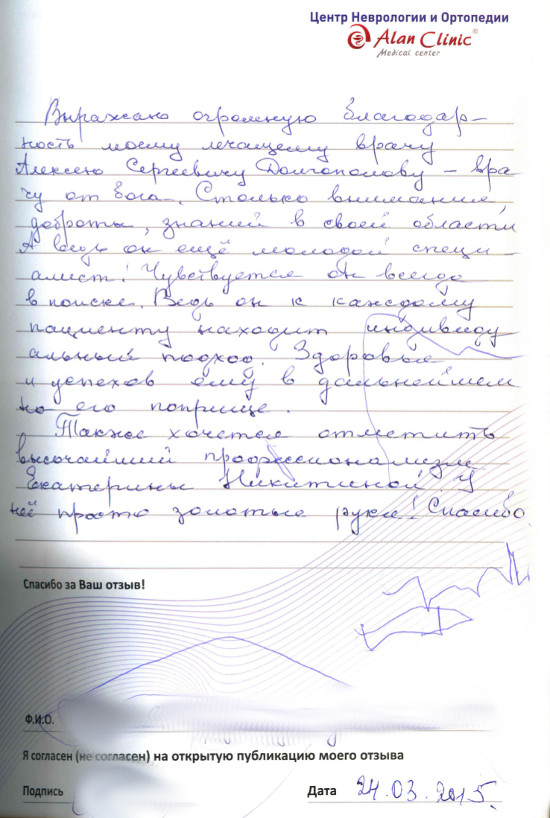 Центр Неврологии и Ортопедии
Alan Clinic®
Medical center
Выражаю огромную благодар-
ность моему лечащему врачу
Алексею Сергеевичу Долгополову – вра
чу от бога. Столько внимания,
доброты, знаний в своей области
А ведь он ещё молодой специ-
алист! Чувствуется он всегда
в поиске. Ведь он к каждому
пациенту находит индивиду
альный подход. Здоровья
и успехов ему в дальнейшем
на его поприще.
Также хочется отметить
высочайший профессионализм
Екатерины Никитиной У
неё просто золотые руки! Спасибо.
Спасибо за Ваш отзыв!
Ф.И.О.
Я согласен (не согласен) на открытую публикацию моего отзыва
Подпись Дата 24.03.2015.